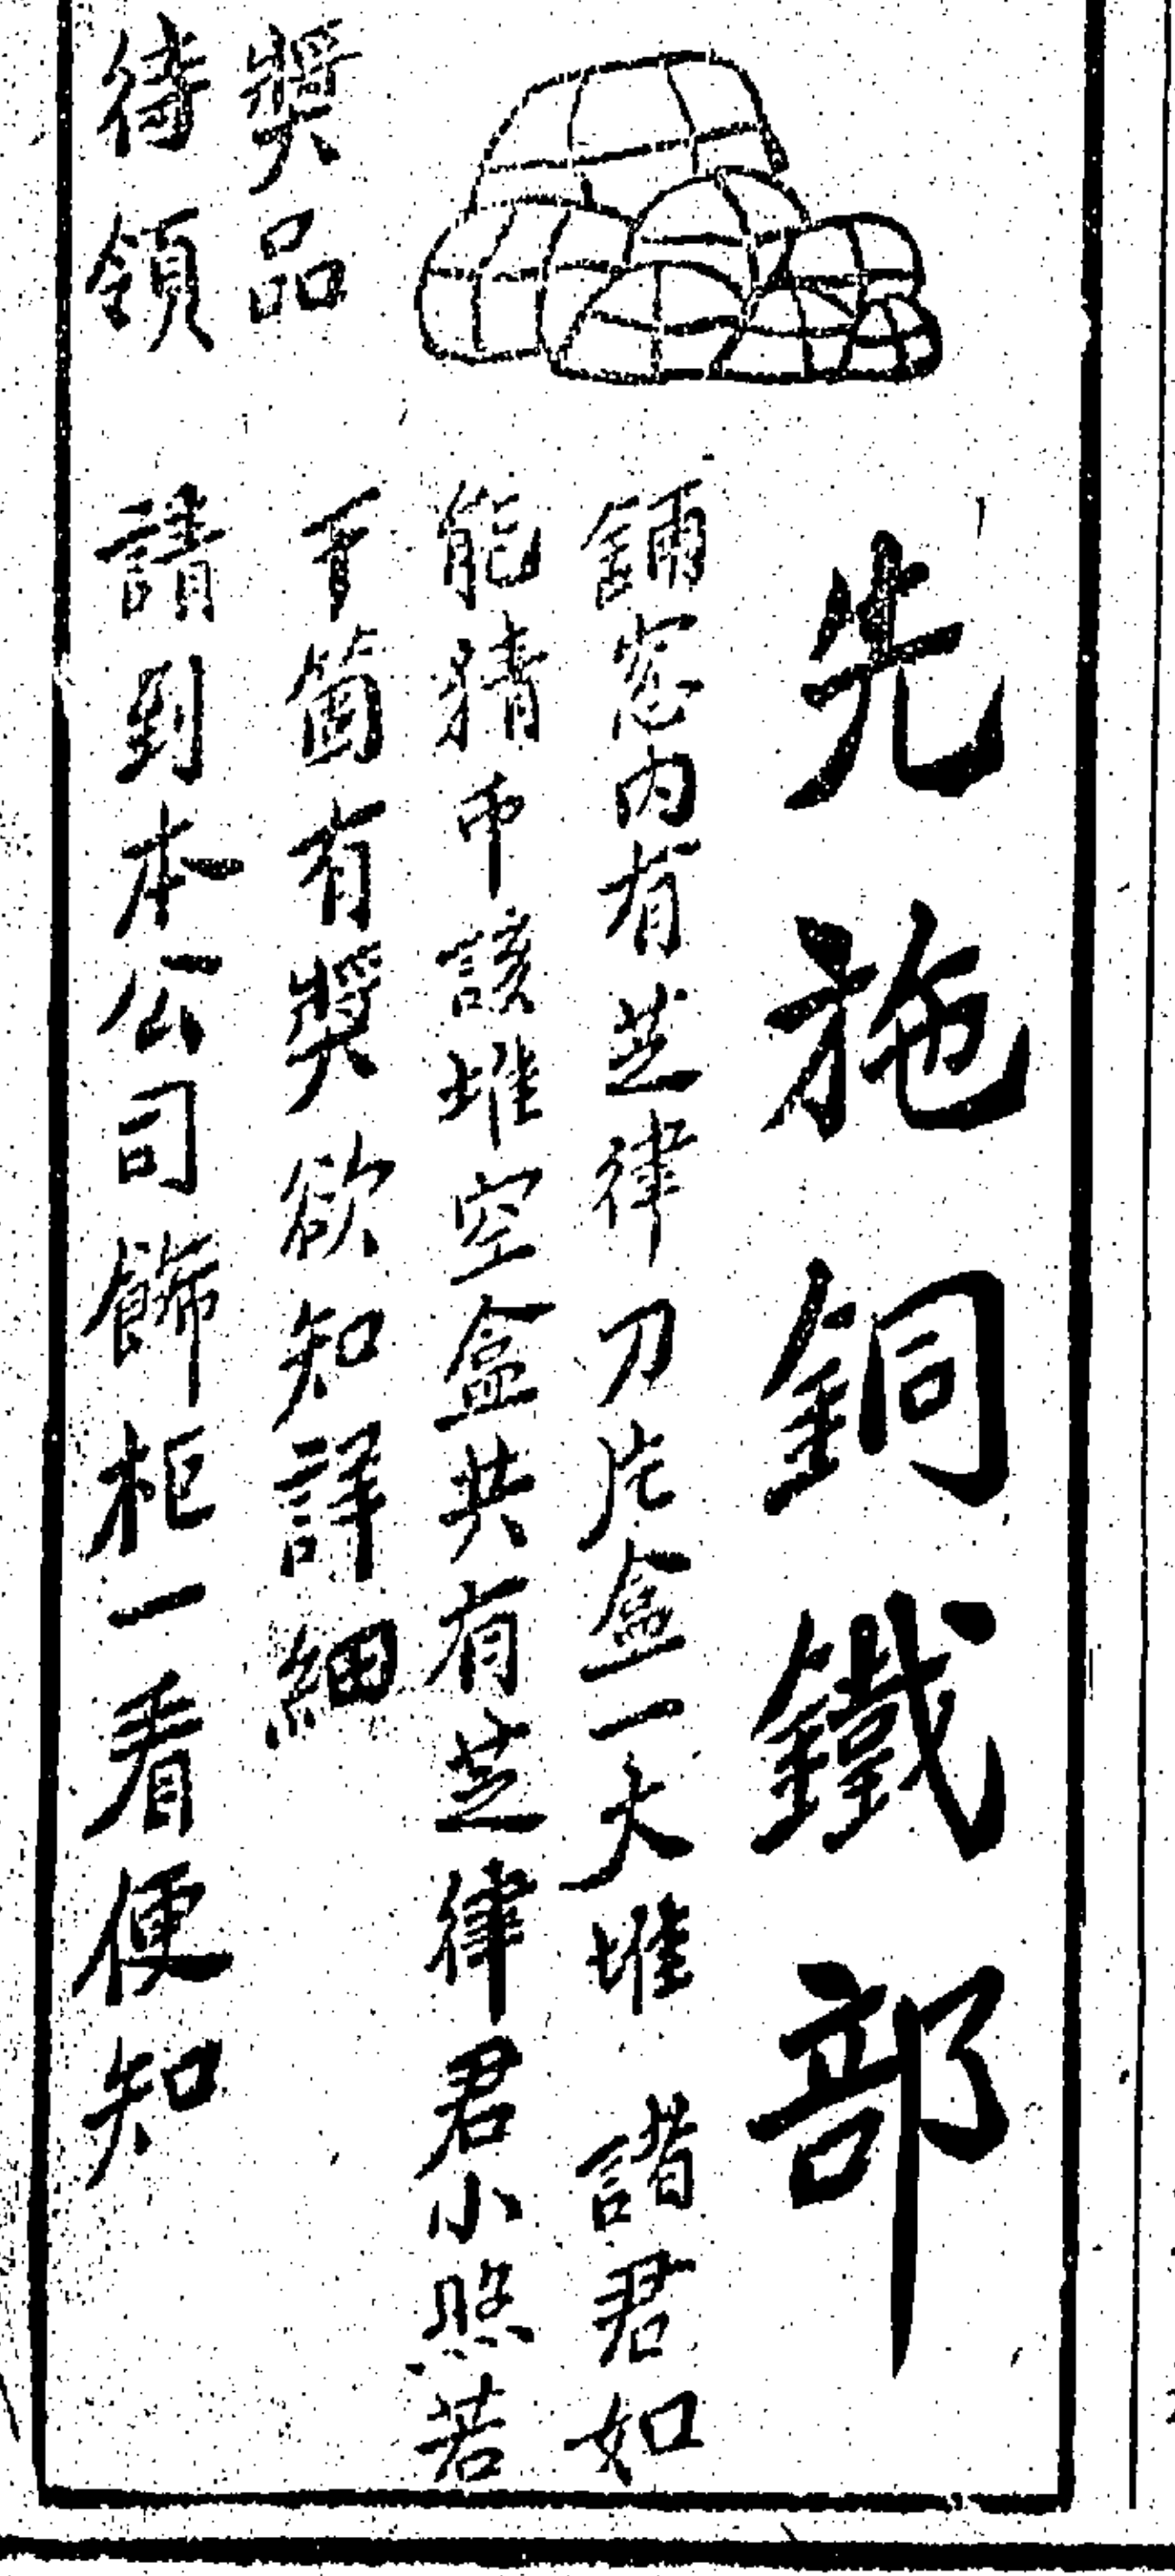 先施銅鐵部
鋪窓內有芝律刀片盒一大堆 諸君如
能猜中該堆空盒共有芝律君小照若
干箇有獎欲知詳細
請到本公司飾柜一看便知
獎品
待領